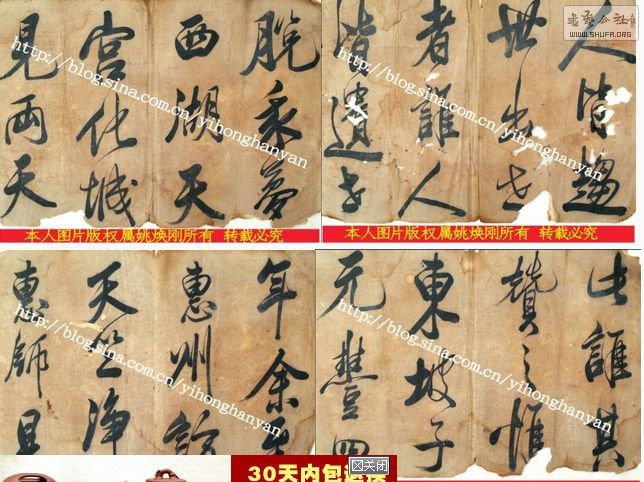 人皆趨
世出世
者誰人
皆遺世
脫我夢
西湖天
宮化城
見兩天
此誰其
贊之惟
東坡子
元豐四
年余
惠州
天竺淨
惠師
書藝公社
WWW.SHUFA.ORG
http://blog.sina.com.cn/yihonghanyan
http://blog.sina.com.cn/yihonghanyan
本人图片版权属姚焕刚所有 转载必究
本人图片版权属姚焕刚所有 转载必究
http://blog.sina.com.cn/yihonghanyan
http://blog.sina.com.cn/yihonghanyan
30天内包退换
关闭